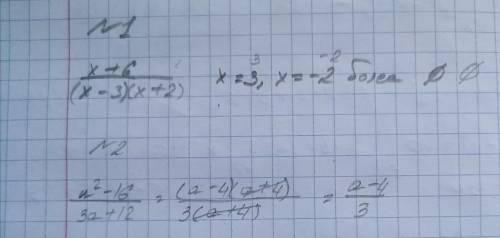 №1
x+6/(x-3)(x+2) x=3, x=-2 болса ∅ ∅
№2
a²-16/3a+12 = (a-4)(a+4)/3(a+4) = a-4/3